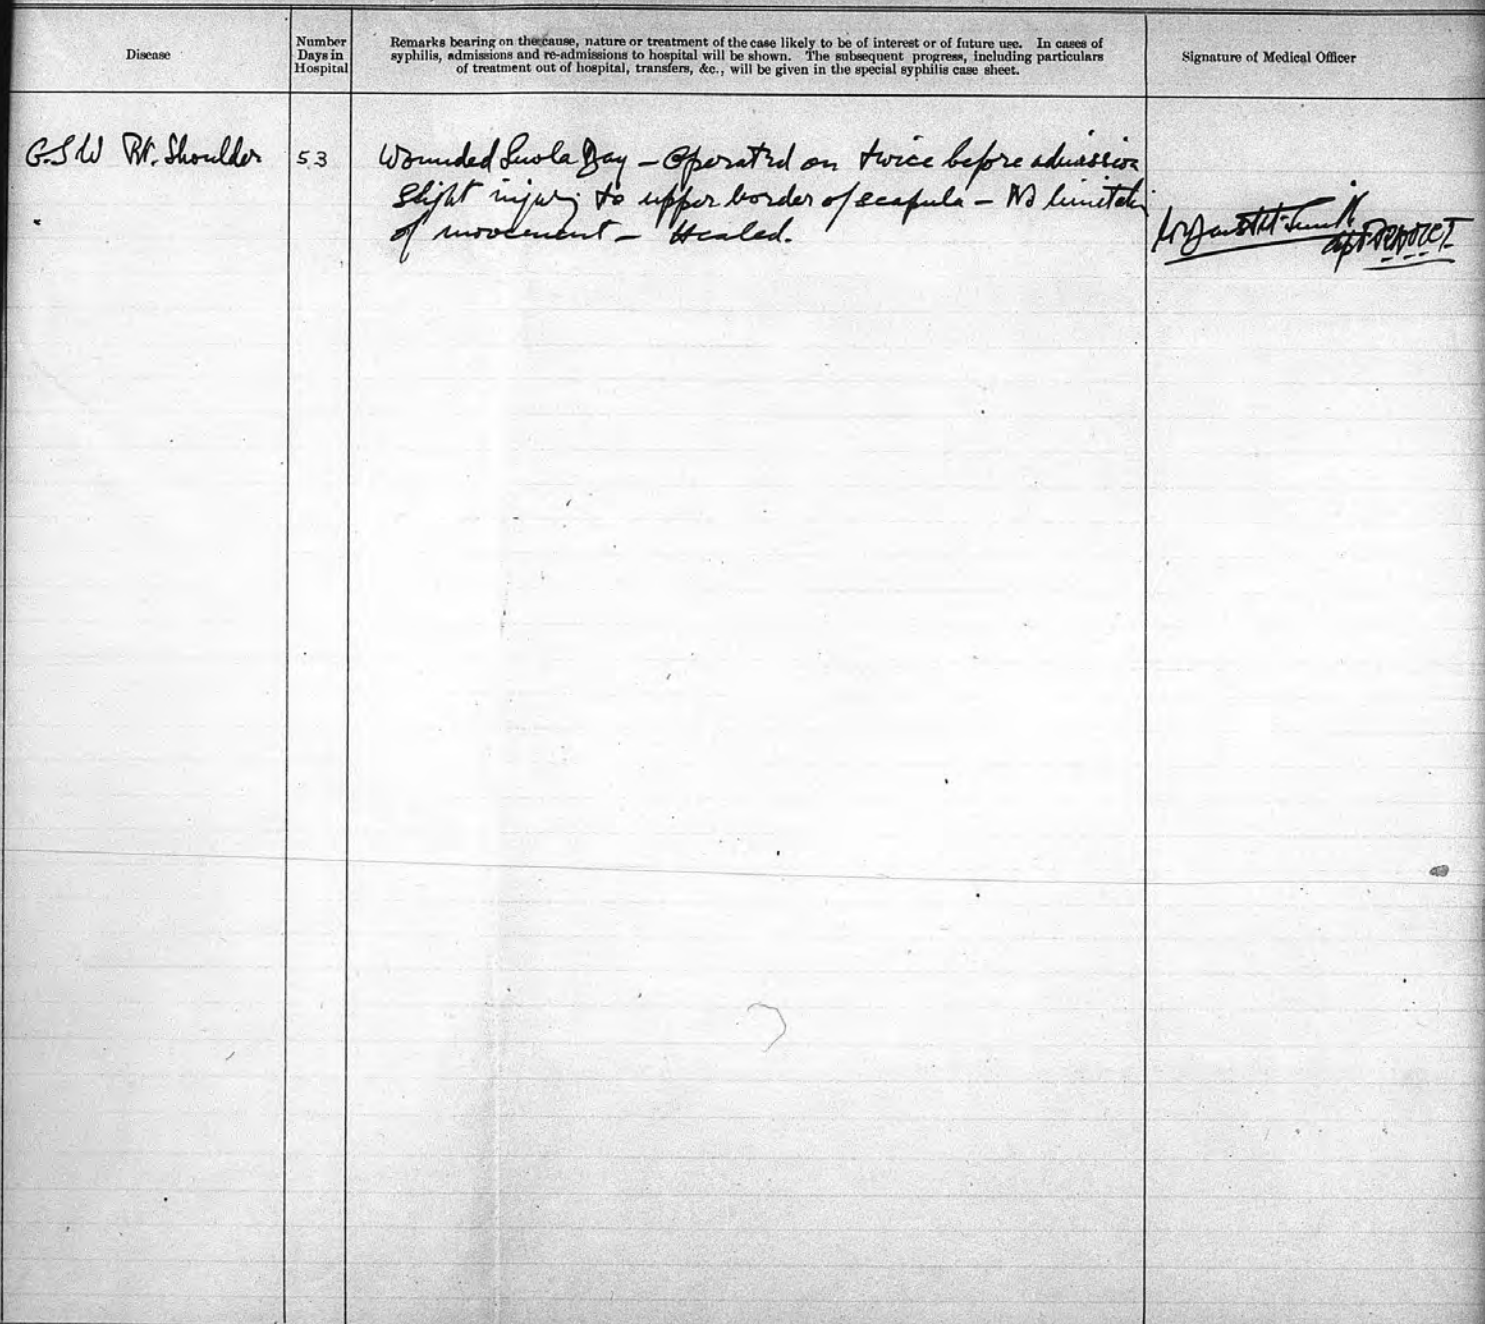 Disease
Number
Days in
Hospital
Remarks bearing on the cause, nature or treatment of the case likely to be of interest or of future use. In cases of
syphilis, admissions and re-admissions to hospital will be shown. The subsequent progress, including particulars
of treatment out of hospital, transfers, &c., will be given in the special syphilis case sheet.
Signature of Medical Officer
G.S.W Rt. Shoulder
53
Wounded Suvla Bay – Operated on twice before admission
Slight injury to upper border of scapula – No limitation
of movement – Healed.
Capt